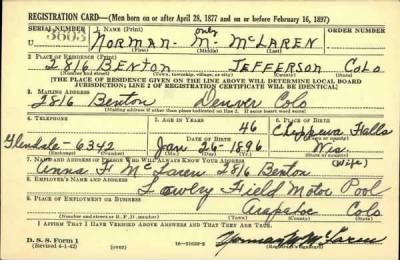 REGISTRATION CARD—(Men born on or after April 28, 1877 and on or before February 16, 1897)
SERIAL NUMBER 1. NAME (Print) ORDER NUMBER
U 3603 NORMAN - M. only McLAREN
(First) (Middle) (Last)
2. PLACE OF RESIDENCE (Print)
2816 BENTON JEFFERSON COLO
(Number and street) (Town, township, village, or city) (County) (State)
[THE PLACE OF RESIDENCE GIVEN ON THE LINE ABOVE WILL DETERMINE LOCAL BOARD
JURISDICTION; LINE 2 OF REGISTRATION CERTIFICATE WILL BE IDENTICAL]
3. MAILING ADDRESS
2816 Benton Denver Colo
[Mailing address if other than place indicated on line 2. If same insert word same]
4. TELEPHONE 5. AGE IN YEARS 6. PLACE OF BIRTH
46 Chippewa Falls
DATE OF BIRTH
Glendale - 6342 Jan 26 - 1896 Wis
7. NAME AND ADDRESS OF PERSON WHO WILL ALWAYS KNOW YOUR ADDRESS (Wife)
Anna F McLaren 2816 Benton
8. EMPLOYER'S NAME AND ADDRESS
Lowry Field Motor Pool
9. PLACE OF EMPLOYMENT OR BUSINESS
Arapahoe Colo
(Number and street or R. F. D. number) (Town) (County) (State)
I AFFIRM THAT I HAVE VERIFIED ABOVE ANSWERS AND THAT THEY ARE TRUE.
D. S. S. Form 1
(Revised 4-1-42) (over) Norman M McLaren
(Registrant's signature)